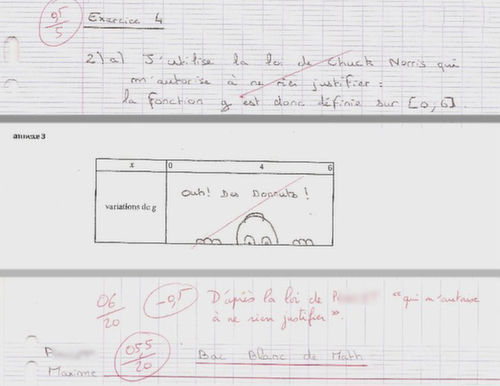 0,5/5 Exercice 4
2) a) J'utilise la loi de Chuck Norris qui
m'autorise à ne rien justifier :
la fonction g est donc définie sur [0,6].
annexe 3
x 0 4 6
variations de g
Ouh! Des Donnuts !
06/20 -0,5 D'après la loi de "qui m'autorise
à ne rien justifier".
05,5/20 Bac Blanc de Math
Maxime